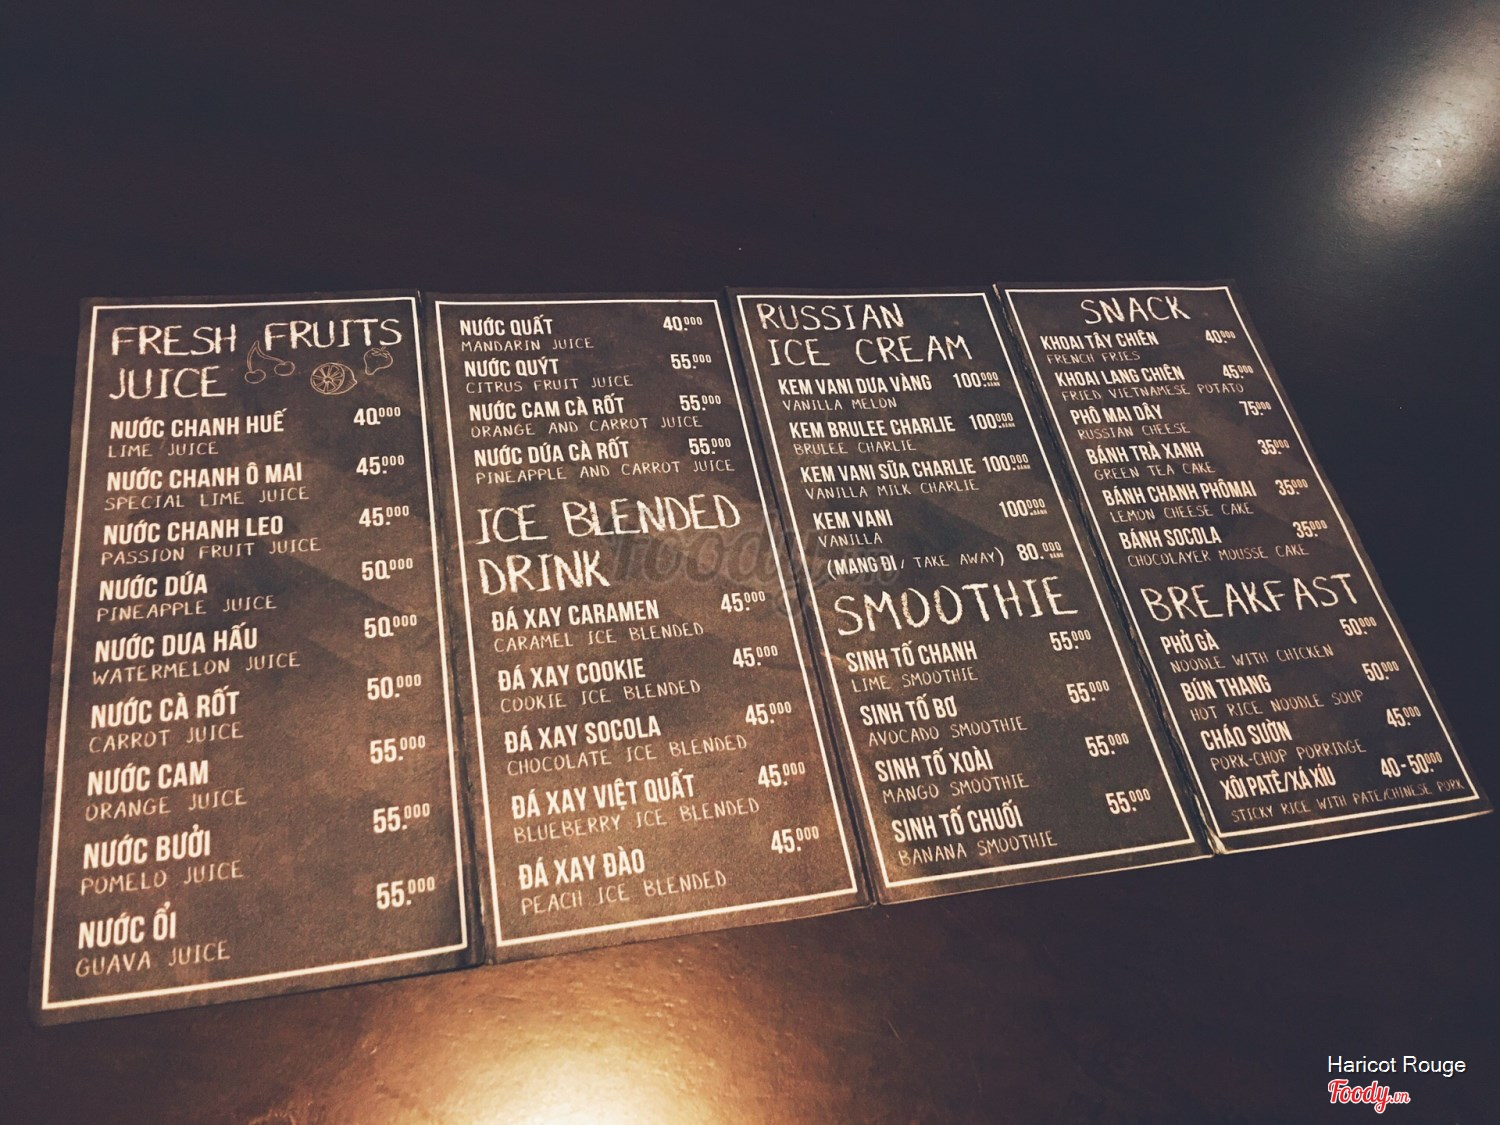 FRESH FRUITS
JUICE
NƯỚC CHANH HUẾ 40.000
LIME JUICE
NƯỚC CHANH Ô MAI 45.000
SPECIAL LIME JUICE
NƯỚC CHANH LEO 45.000
PASSION FRUIT JUICE
NƯỚC DỨA 50.000
PINEAPPLE JUICE
NƯỚC DƯA HẤU 50.000
WATERMELON JUICE
NƯỚC CÀ RỐT 50.000
CARROT JUICE
NƯỚC CAM 55.000
ORANGE JUICE
NƯỚC BƯỞI 55.000
POMELO JUICE
NƯỚC ỔI 55.000
GUAVA JUICE
NƯỚC QUẤT 40.000
MANDARIN JUICE
NƯỚC QUÝT 55.000
CITRUS FRUIT JUICE
NƯỚC CAM CÀ RỐT 55.000
ORANGE AND CARROT JUICE
NƯỚC DỨA CÀ RỐT 55.000
PINEAPPLE AND CARROT JUICE
ICE BLENDED
DRINK
ĐÁ XAY CARAMEN 45.000
CARAMEL ICE BLENDED
ĐÁ XAY COOKIE 45.000
COOKIE ICE BLENDED
ĐÁ XAY SOCOLA 45.000
CHOCOLATE ICE BLENDED
ĐÁ XAY VIỆT QUẤT 45.000
BLUEBERRY ICE BLENDED
ĐÁ XAY ĐÀO 45.000
PEACH ICE BLENDED
RUSSIAN
ICE CREAM
KEM VANI DƯA VÀNG 100.000
VANILLA MELON
KEM BRULEE CHARLIE 100.000
BRULEE CHARLIE
KEM VANI SỮA CHARLIE 100.000
VANILLA MILK CHARLIE
KEM VANI 100.000
VANILLA
(MANG ĐI / TAKE AWAY) 80.000
SMOOTHIE
SINH TỐ CHANH 55.000
LIME SMOOTHIE
SINH TỐ BƠ 55.000
AVOCADO SMOOTHIE
SINH TỐ XOÀI 55.000
MANGO SMOOTHIE
SINH TỐ CHUỐI 55.000
BANANA SMOOTHIE
SNACK
KHOAI TÂY CHIÊN 40.000
FRENCH FRIES
KHOAI LANG CHIÊN 45.000
FRIED VIETNAMESE POTATO
PHÔ MAI DÂY 75.000
RUSSIAN CHEESE
BÁNH TRÀ XANH 35.000
GREEN TEA CAKE
BÁNH CHANH PHÔMAI 35.000
LEMON CHEESE CAKE
BÁNH SOCOLA 35.000
CHOCOLAYER MOUSSE CAKE
BREAKFAST
PHỞ GÀ 50.000
NOODLE WITH CHICKEN
BÚN THANG 50.000
HOT RICE NOODLE SOUP
CHÁO SƯỜN 45.000
PORK-CHOP PORRIDGE
XÔI PATÊ/XÁ XÍU 40-50.000
STICKY RICE WITH PATE/CHINESE PORK
Foody.vn
Haricot Rouge
Foody.vn